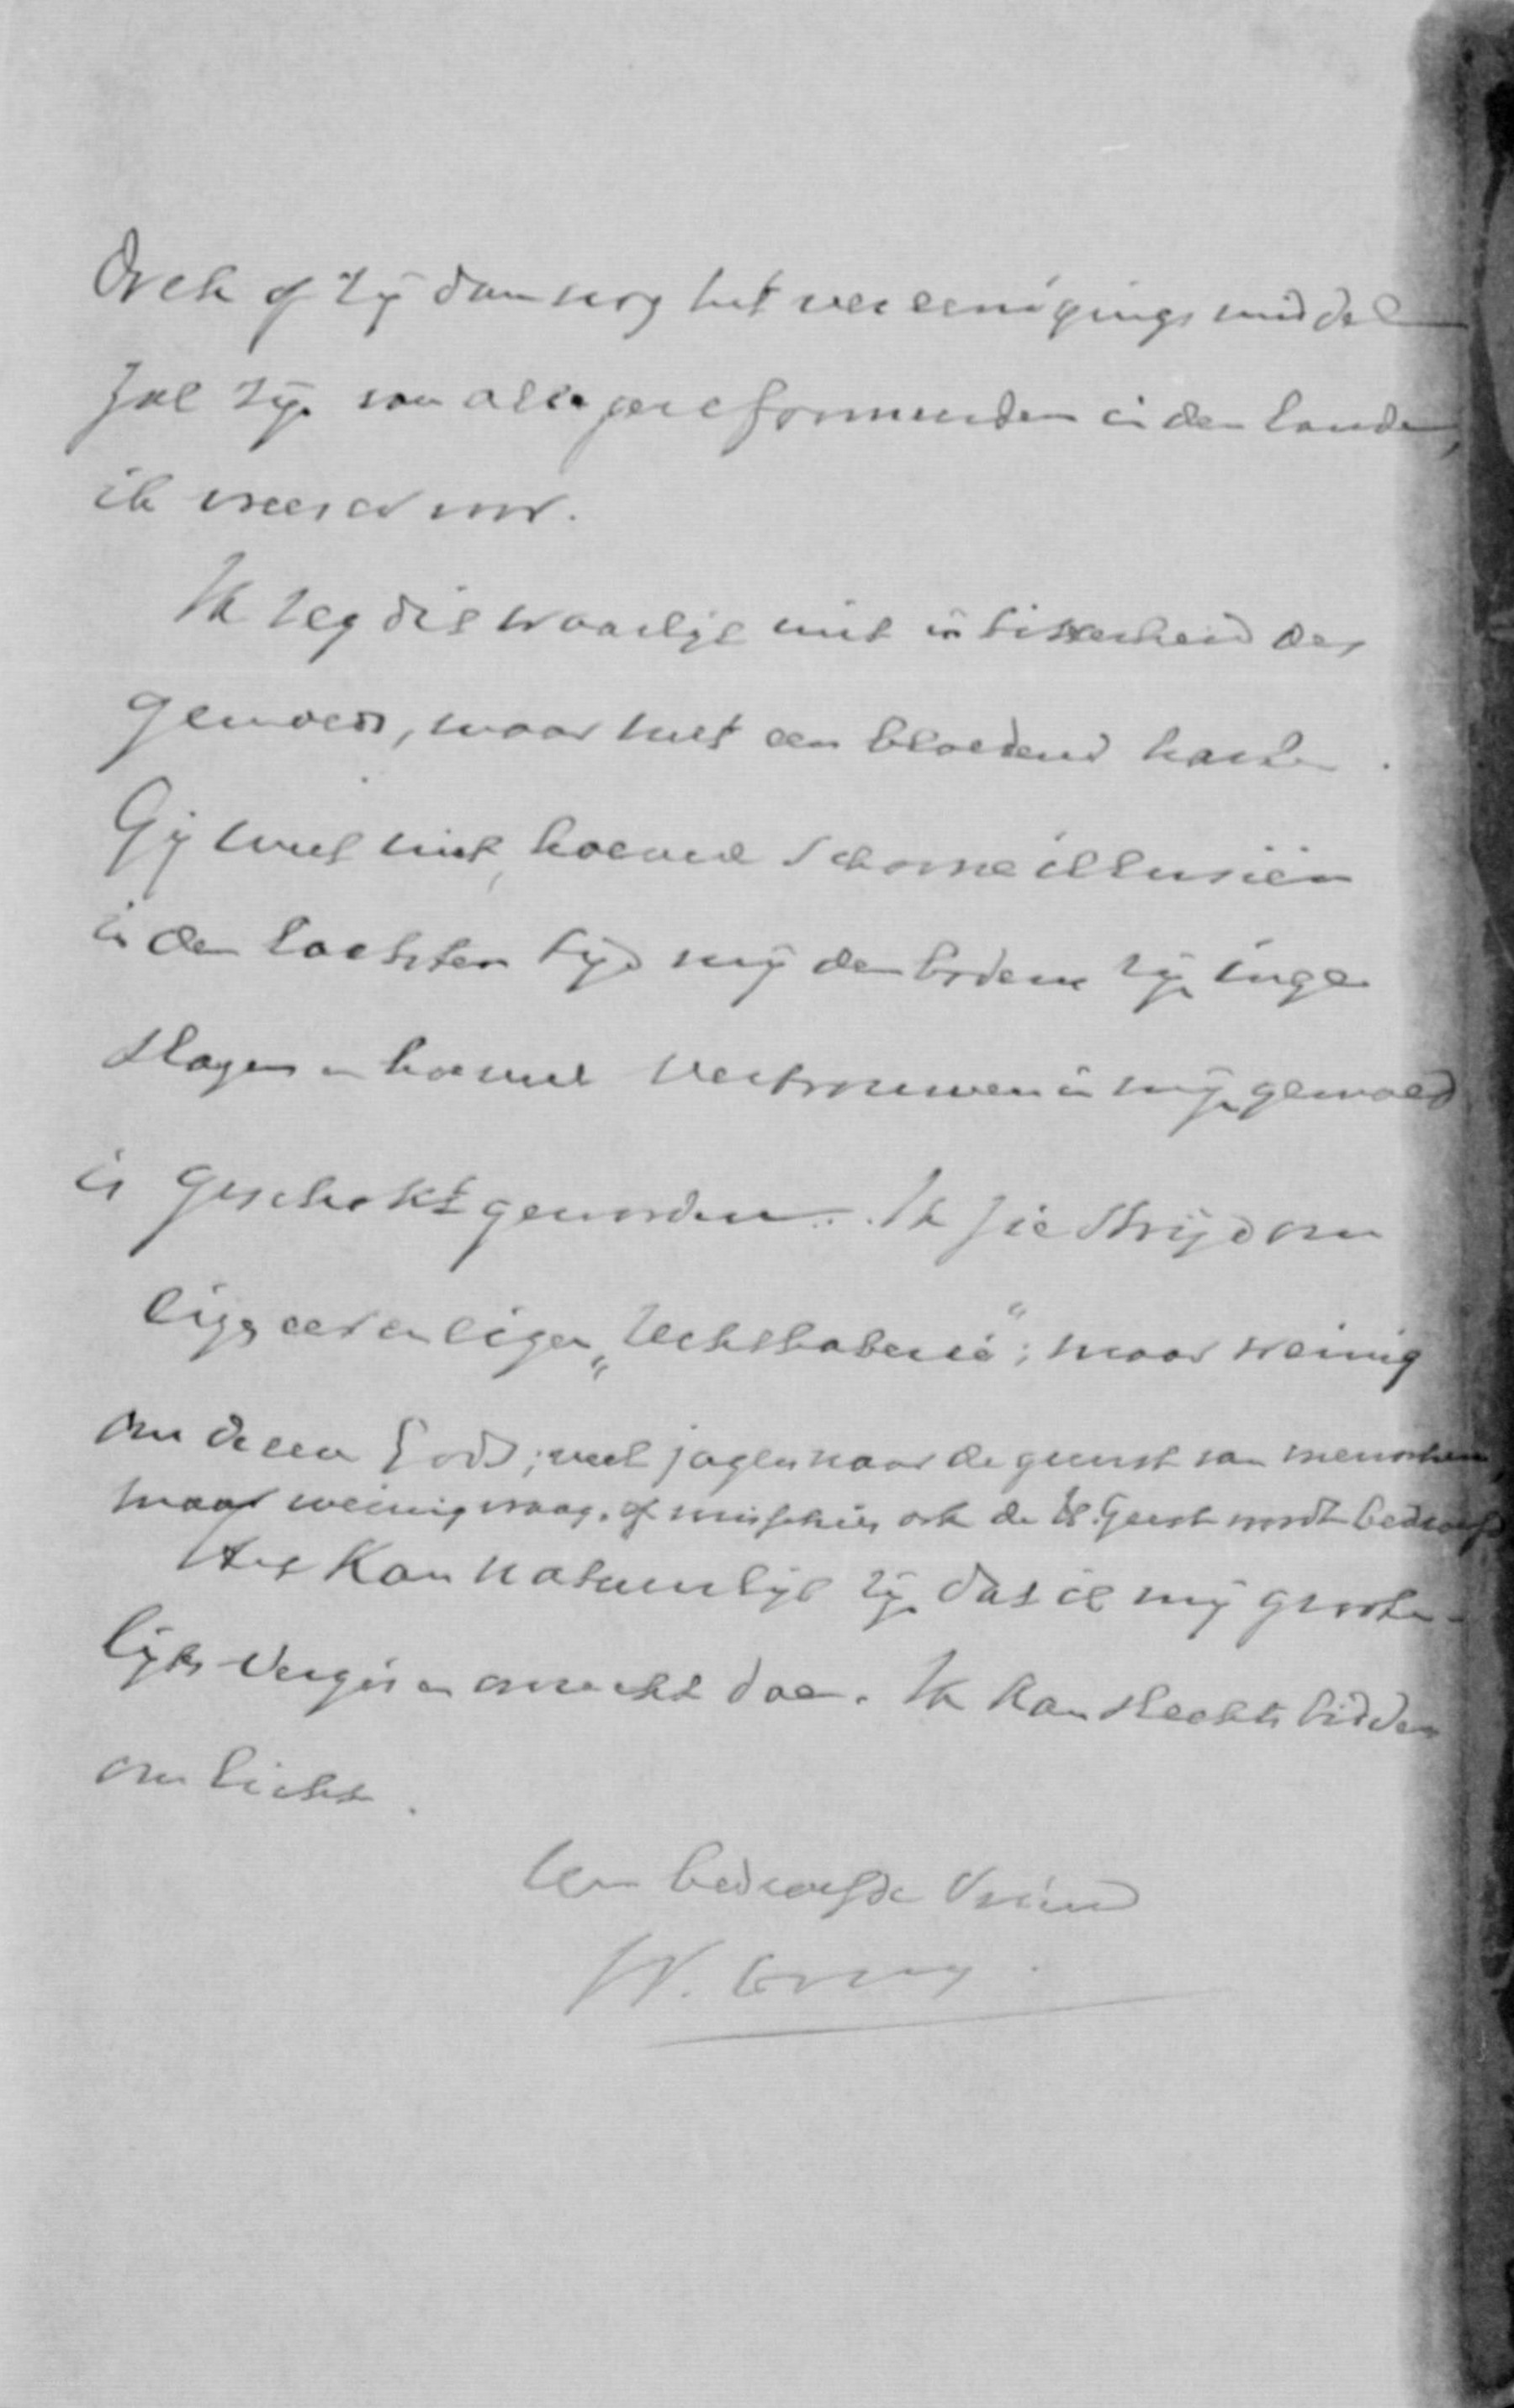 Och of zij dan nog het vereenigingsmiddel
zal zijn van alle gereformeerden in den lande,
ik vrees er voor.
Ik zeg dit waarlijk niet in bitterheid des
gemoeds, maar met een bloedend harte.
Gij weet niet, hoeveel schoone illusiën
in den laatsten tijd mij den bodem zijn inge
slagen en hoeveel vertrouwen in mijn gemoed
is geschokt geworden. Ik zie strijd om
eigen eer en eigen „rechthaberei"; maar weinig
om de eer Gods; veel jagen naar de gunst van menschen,
maar weinig vraag, of misschien ook de H. Geest wordt bedroefd
Het kan natuurlijk zijn dat ik mij groote-
lijks vergis en onrecht doe. Ik kan slechts bidden
om licht.
Uw bedroefde vriend
W.